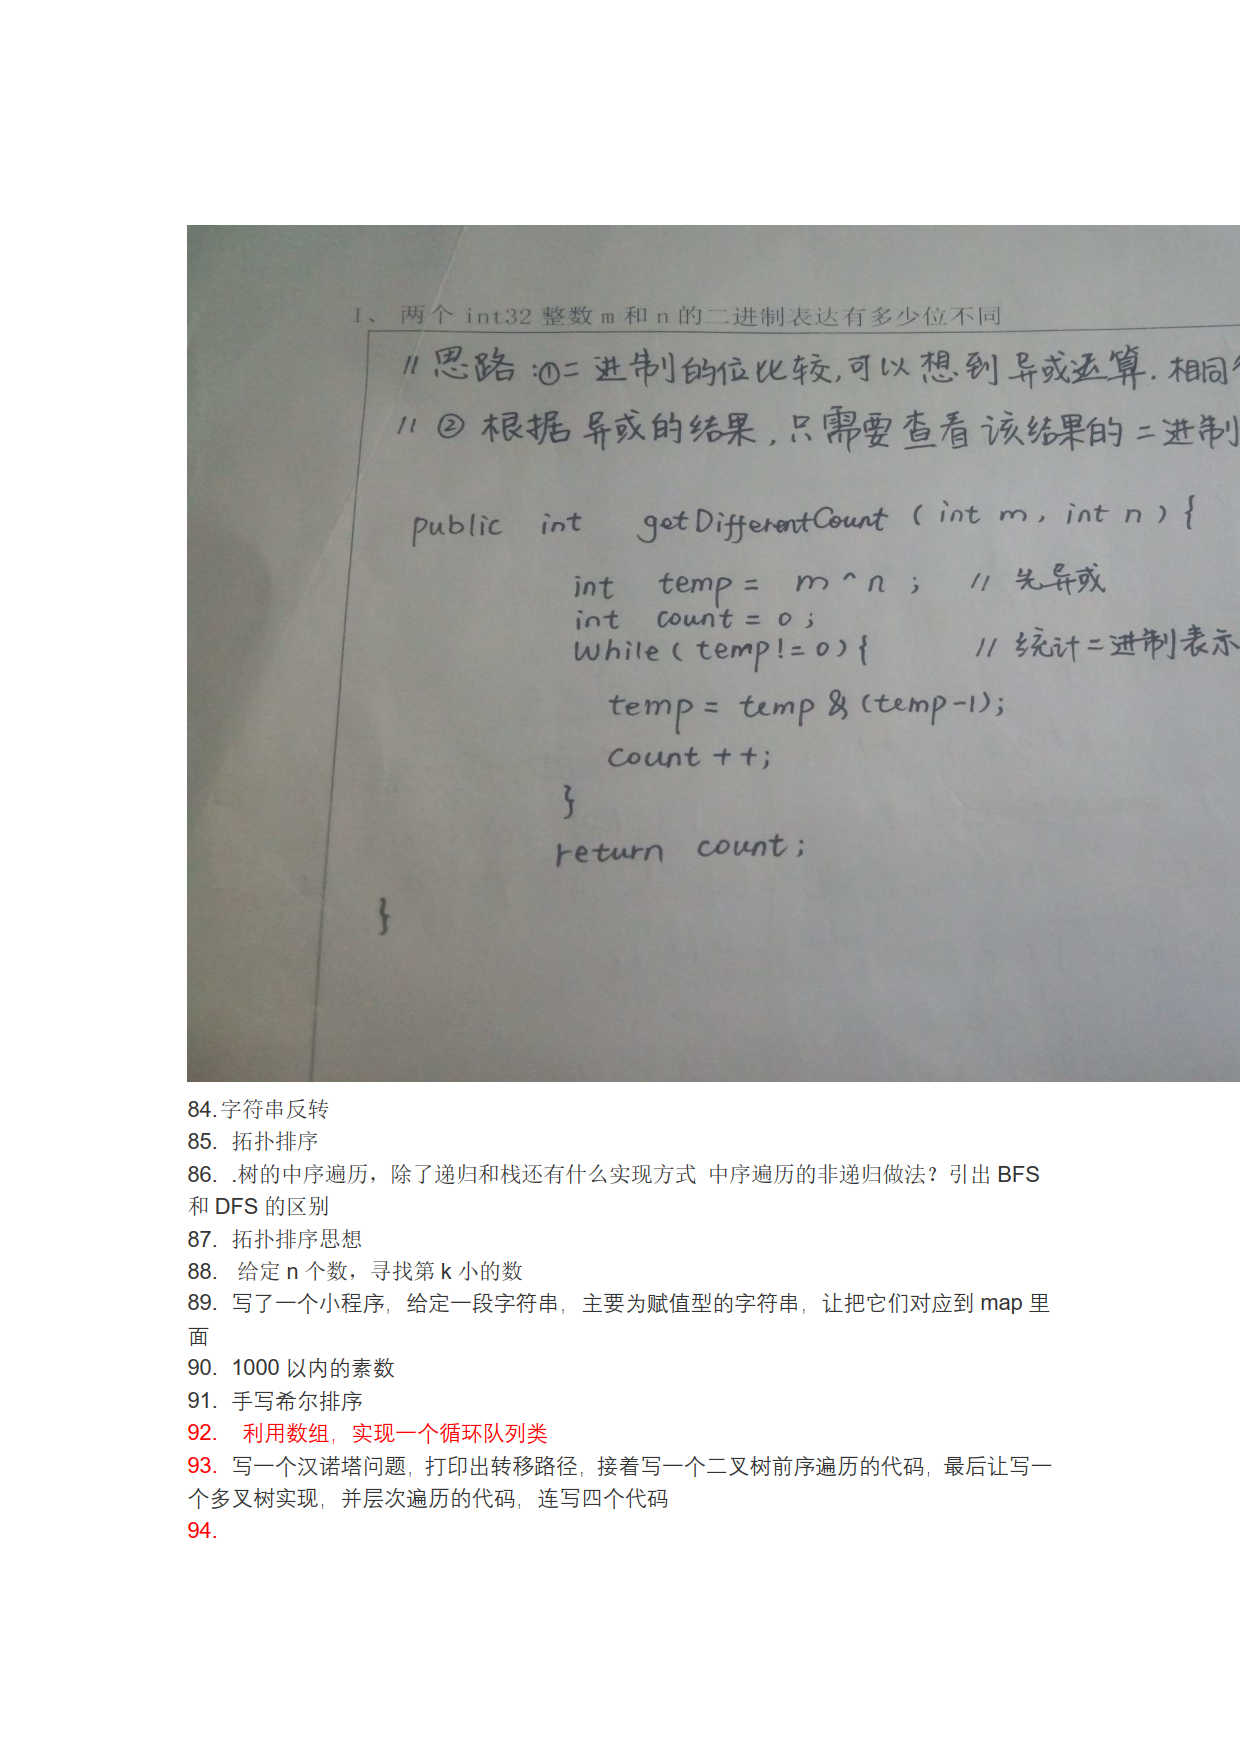 1、 两个 int32 整数 m 和 n 的二进制表达有多少位不同
// 思路:①二进制的位比较,可以想到异或运算.相同
// ② 根据异或的结果,只需要查看该结果的二进制
public int getDifferentCount (int m, int n) {
int temp = m ^ n ; // 先异或
int count = 0 ;
While (temp != 0) { // 统计二进制表示
temp = temp & (temp-1);
count ++;
}
return count ;
}
84.字符串反转
85. 拓扑排序
86. .树的中序遍历，除了递归和栈还有什么实现方式 中序遍历的非递归做法？引出 BFS
和 DFS 的区别
87. 拓扑排序思想
88. 给定 n 个数，寻找第 k 小的数
89. 写了一个小程序，给定一段字符串，主要为赋值型的字符串，让把它们对应到 map 里
面
90. 1000 以内的素数
91. 手写希尔排序
92. 利用数组，实现一个循环队列类
93. 写一个汉诺塔问题，打印出转移路径，接着写一个二叉树前序遍历的代码，最后让写一
个多叉树实现，并层次遍历的代码，连写四个代码
94.